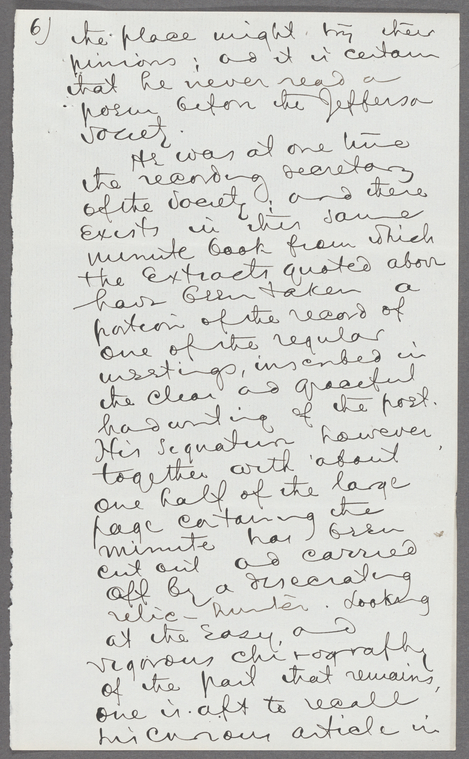 6)
the place might try their
pinions; and it is certain
that he never read a
poem before the Jefferson
Society.
He was at one time
the recording secretary
of the Society; and there
exists in this same
minute book from which
the extracts quoted above
have been taken a
portion of the record of
one of the regular
meetings, inscribed in
the clear and graceful
handwriting of the poet.
His signature however,
together with about
one half of the large
page containing the
minute has been
cut out and carried
off by a desecrating
relic-hunter. Looking
at the easy, and
vigorous chirography
of the part that remains,
one is apt to recall
humorous article in